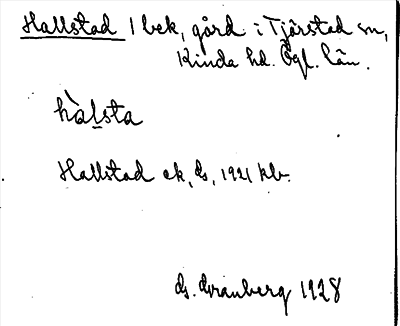 Hallstad 1 bek, gård i Tjärstad sn,
Kinda hd. Ögl. län.
hàlsta
Hallstad ek, ds, 1921 kb.
ds. Granberg 1928